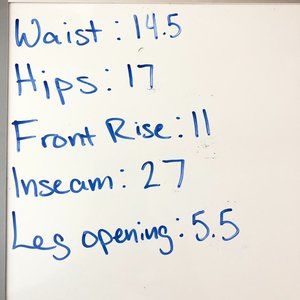 Waist: 14.5
Hips: 17
Front Rise: 11
Inseam: 27
Leg opening: 5.5